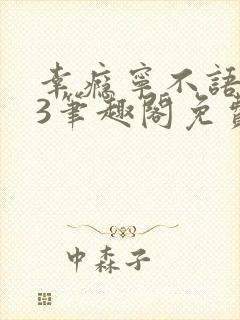 幸瘾寧不語
3筆趣閣免費
中森子